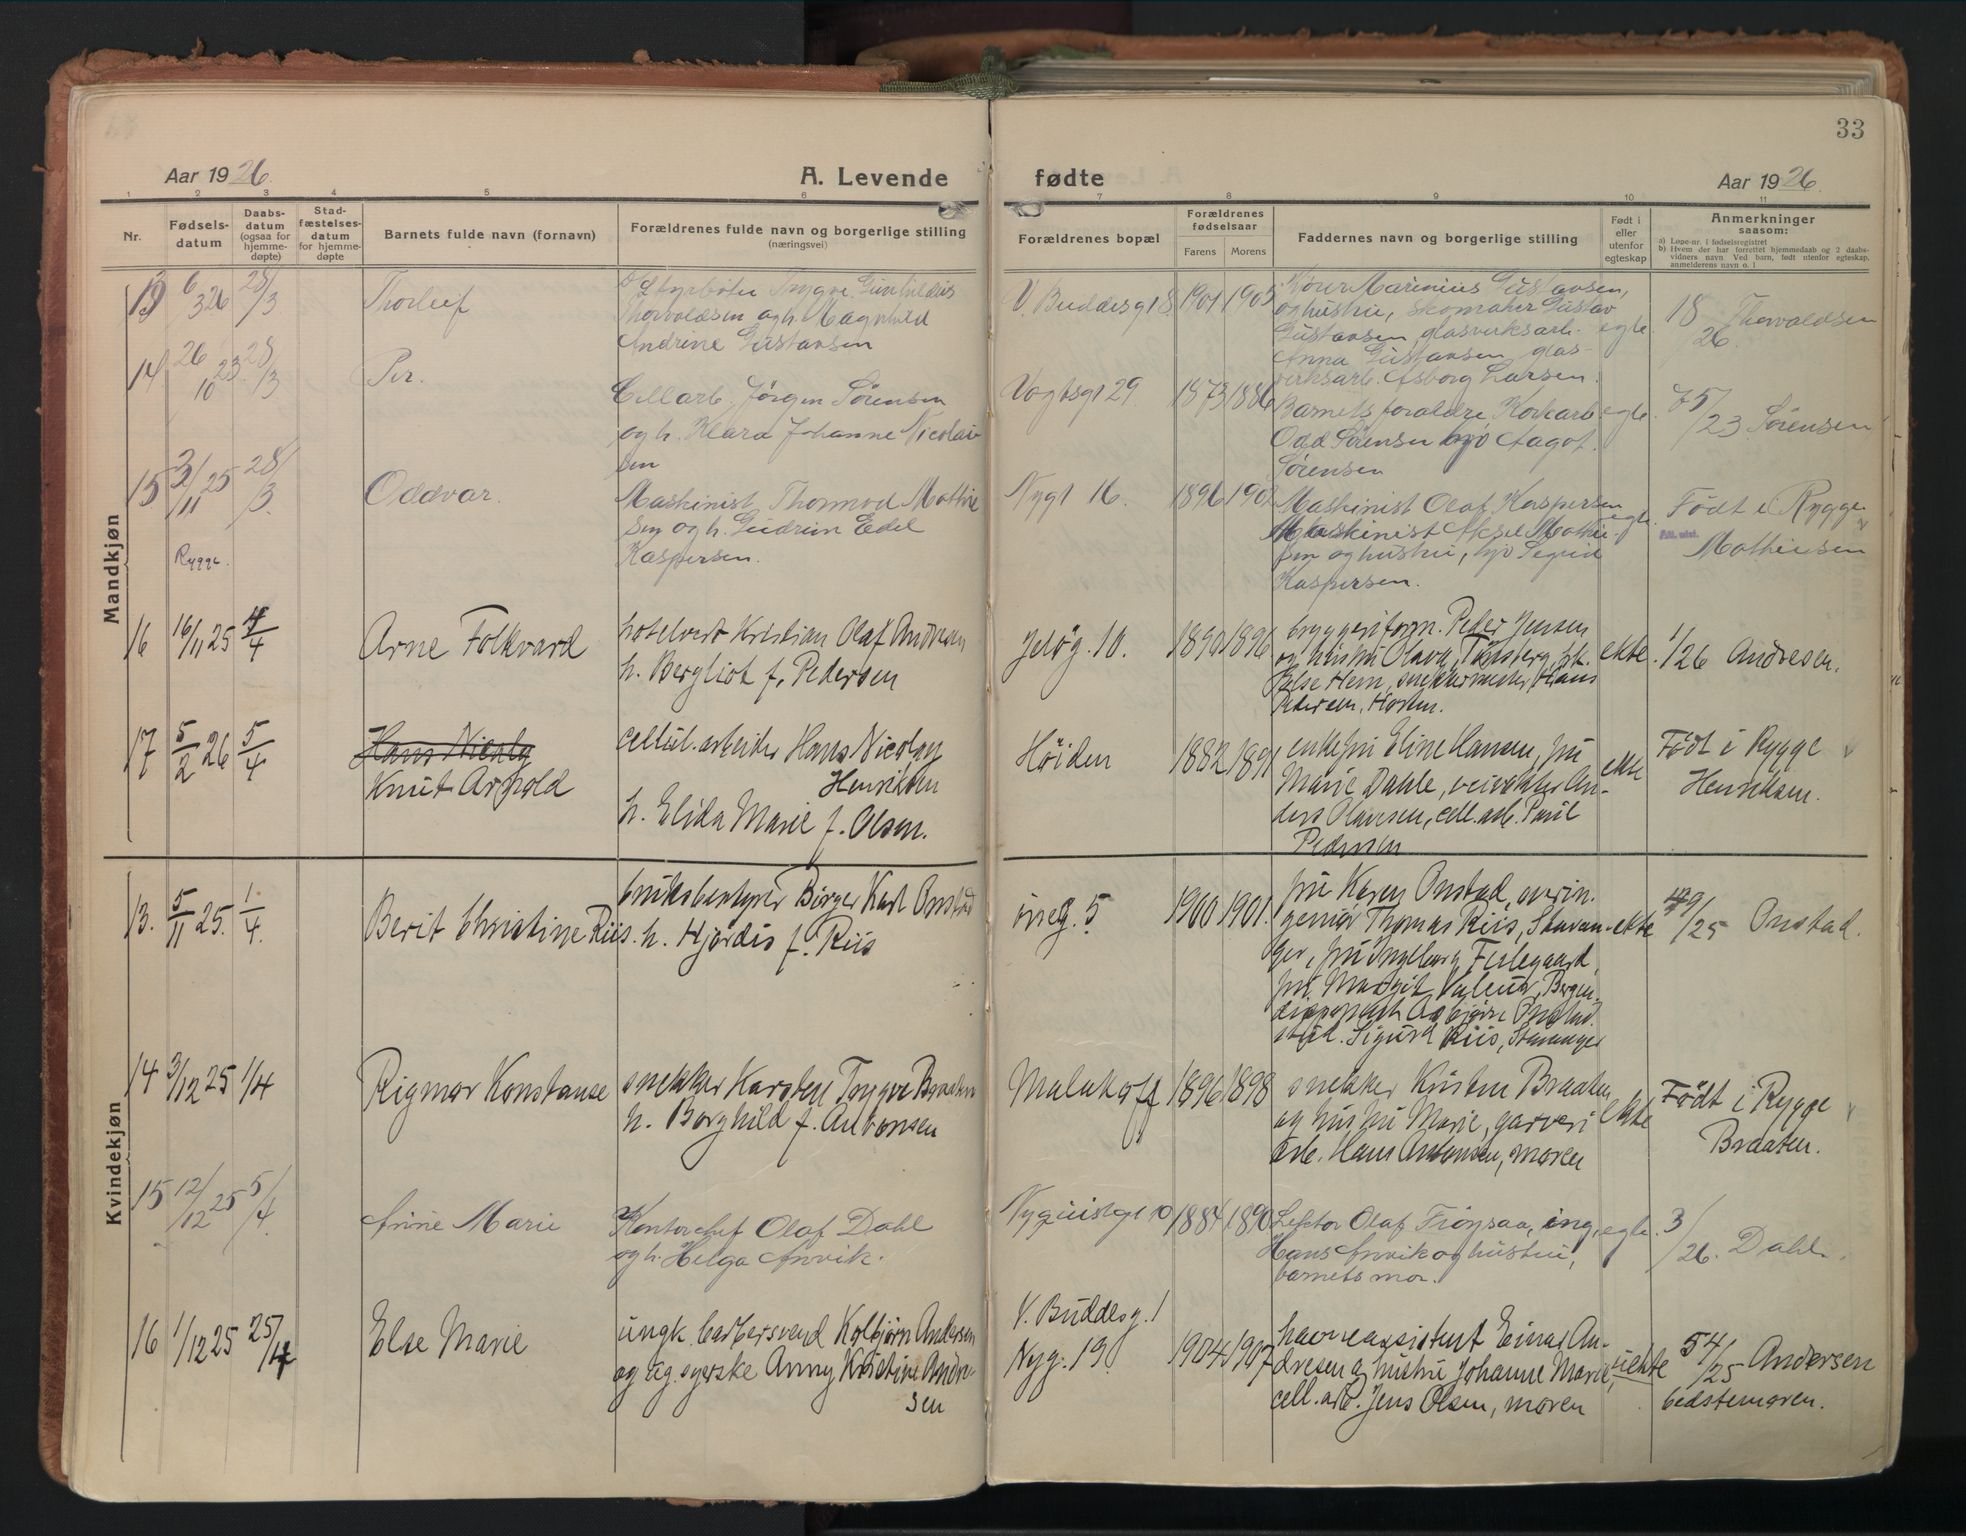 33
Aar 1926.
A. Levende fødte
Aar 1926.
1 2 3 4 5 6 7 8 9 10 11
Nr.
Fødsels-
datum
Daabs-
datum
(ogsaa for
hjemme-
døpte)
Stad-
fæstelses-
datum
for hjemme-
døpte
Barnets fulde navn (fornavn)
Forældrenes fulde navn og borgerlige stilling
(næringsvei)
Forældrenes bopæl
Forældrenes
fødselsaar
Farens Morens
Faddernes navn og borgerlige stilling
Født i
eller
utenfor
egteskap
Anmerkninger
saasom:
a) Løpe-nr. i fødselsregistret
b) Hvem der har forrettet hjemmedaab og 2 daabs-
vidners navn. Ved barn, født utenfor egteskap,
anmelderens navn o. l.
Mandkjøn
13 6/3 26 28/3 Thorleif
Trygve
Thorvaldsen og h. Magnhild
Andrine Gustavsen
V. Buddesgt 8. 1901 1905
Marinius Gustavsen,
og hustru, Skomaker Gustav
Gustavsen, glasverksarb.
Anna Gustavsen, glas-
verksarb. Asborg Larsen.
egte.
18/26. Thorvaldsen
14 26/10 23. 28/3 Per.
Cellarb. Jörgen Sörensen
og h. Klara Johanne Nicolai-
sen
Vogtsgt 29. 1873 1886
Barnets foraldre, Korkarb.
Odd Sörensen Aagot
Sörensen
egte.
75/23 Sörensen
15 3/11 25 28/3. Oddvar.
Rygge.
Maskinist Thormod Mathie
sen og h. Gudrun Edel
Kaspersen.
Nygt 16. 1896 1902
Maskinist Olaf Kaspersen
Maskinist Aksel Mathie-
sen og hustru, Sigrid
Kaspersen.
egte.
Födt i Rygge
Mathiesen
16 16/11 25 4/4 Arne Folkvard
hotelvert Kristian Olaf Andresen
h. Bergliot f. Pedersen
Jelög. 10. 1890 1896
bryggeriform. Peder Jensen
og hustru Olava, Tönsberg,
Else Hem, snekkermester Hans
Pedersen, Horten.
ekte.
1/26 Andresen.
17 5/2 26 5/4 Hans Nicolay
Knut Arnold
cellul. arbeider Hans Nicolay
Henriksen
h. Elida Marie f. Olsen.
Höiden 1882 1891
enkefru Eline Hansen, fru
Marie Dahle, veivokter An-
ders Olaussen, cell. arb. Paul
Pedersen
ekte
Födt i Rygge
Henriksen.
Kvindekjøn
13. 5/11 25. 1/4. Berit Christine Riis.
bruksbestyrer Börger Karl Onstad
h. Hjördis f. Riis
5 1900 1901.
fru Karen Onstad, overin-
geniör Thomas Riis, Stavan-
ger, fru Ingeborg
fru Margit Bergen.
Asbjörn Onstad.
stud. Sigurd Riis, Stavanger
ekte
49/25 Onstad.
14 3/12 25 1/4 Rigmor Konstanse
snekker Karsten Trygve Braaten
h. Borghild f. Antonsen
Malakoff 1896 1898
snekker Kristen Braaten
og hustru Marie, garveri
arb. Hans Antonsen, moren
ekte
Födt i Rygge
Braaten.
15 12/12 25 5/4. Anne Marie
Kontorchef Olaf Dahl
og h. Helga Anvik.
Nyquistgt 10 1884 1890
Lektor Olaf Fröysaa, ing.
Hans Anvik og hustru,
barnets mor.
egte.
3/26. Dahl.
16 1/12 25 25/4 Else Marie
ungk. barbersvend Kolbjörn Andersen
og pg. syerske Anny Kristine Andre-
sen
V. Buddesg. 1
Nyg. 19 1904 1907
havneassistent Einar An-
dresen og hustru Johanne Marie,
cell. arb. Jens Olsen, moren
uekte
54/25 Andersen
bedstemoren.